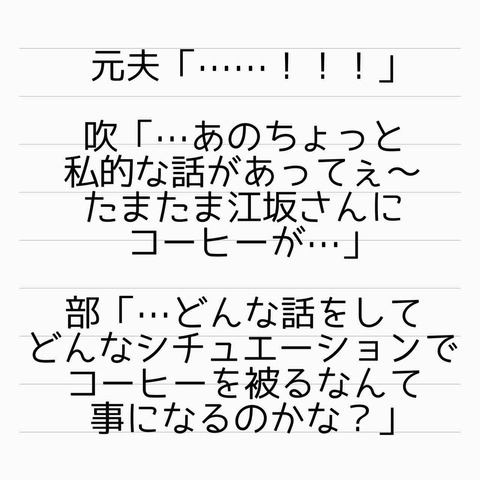 元夫「……！！！」
吹「…あのちょっと
私的な話があってぇ〜
たまたま江坂さんに
コーヒーが…」
部「…どんな話をして
どんなシチュエーションで
コーヒーを被るなんて
事になるのかな？」